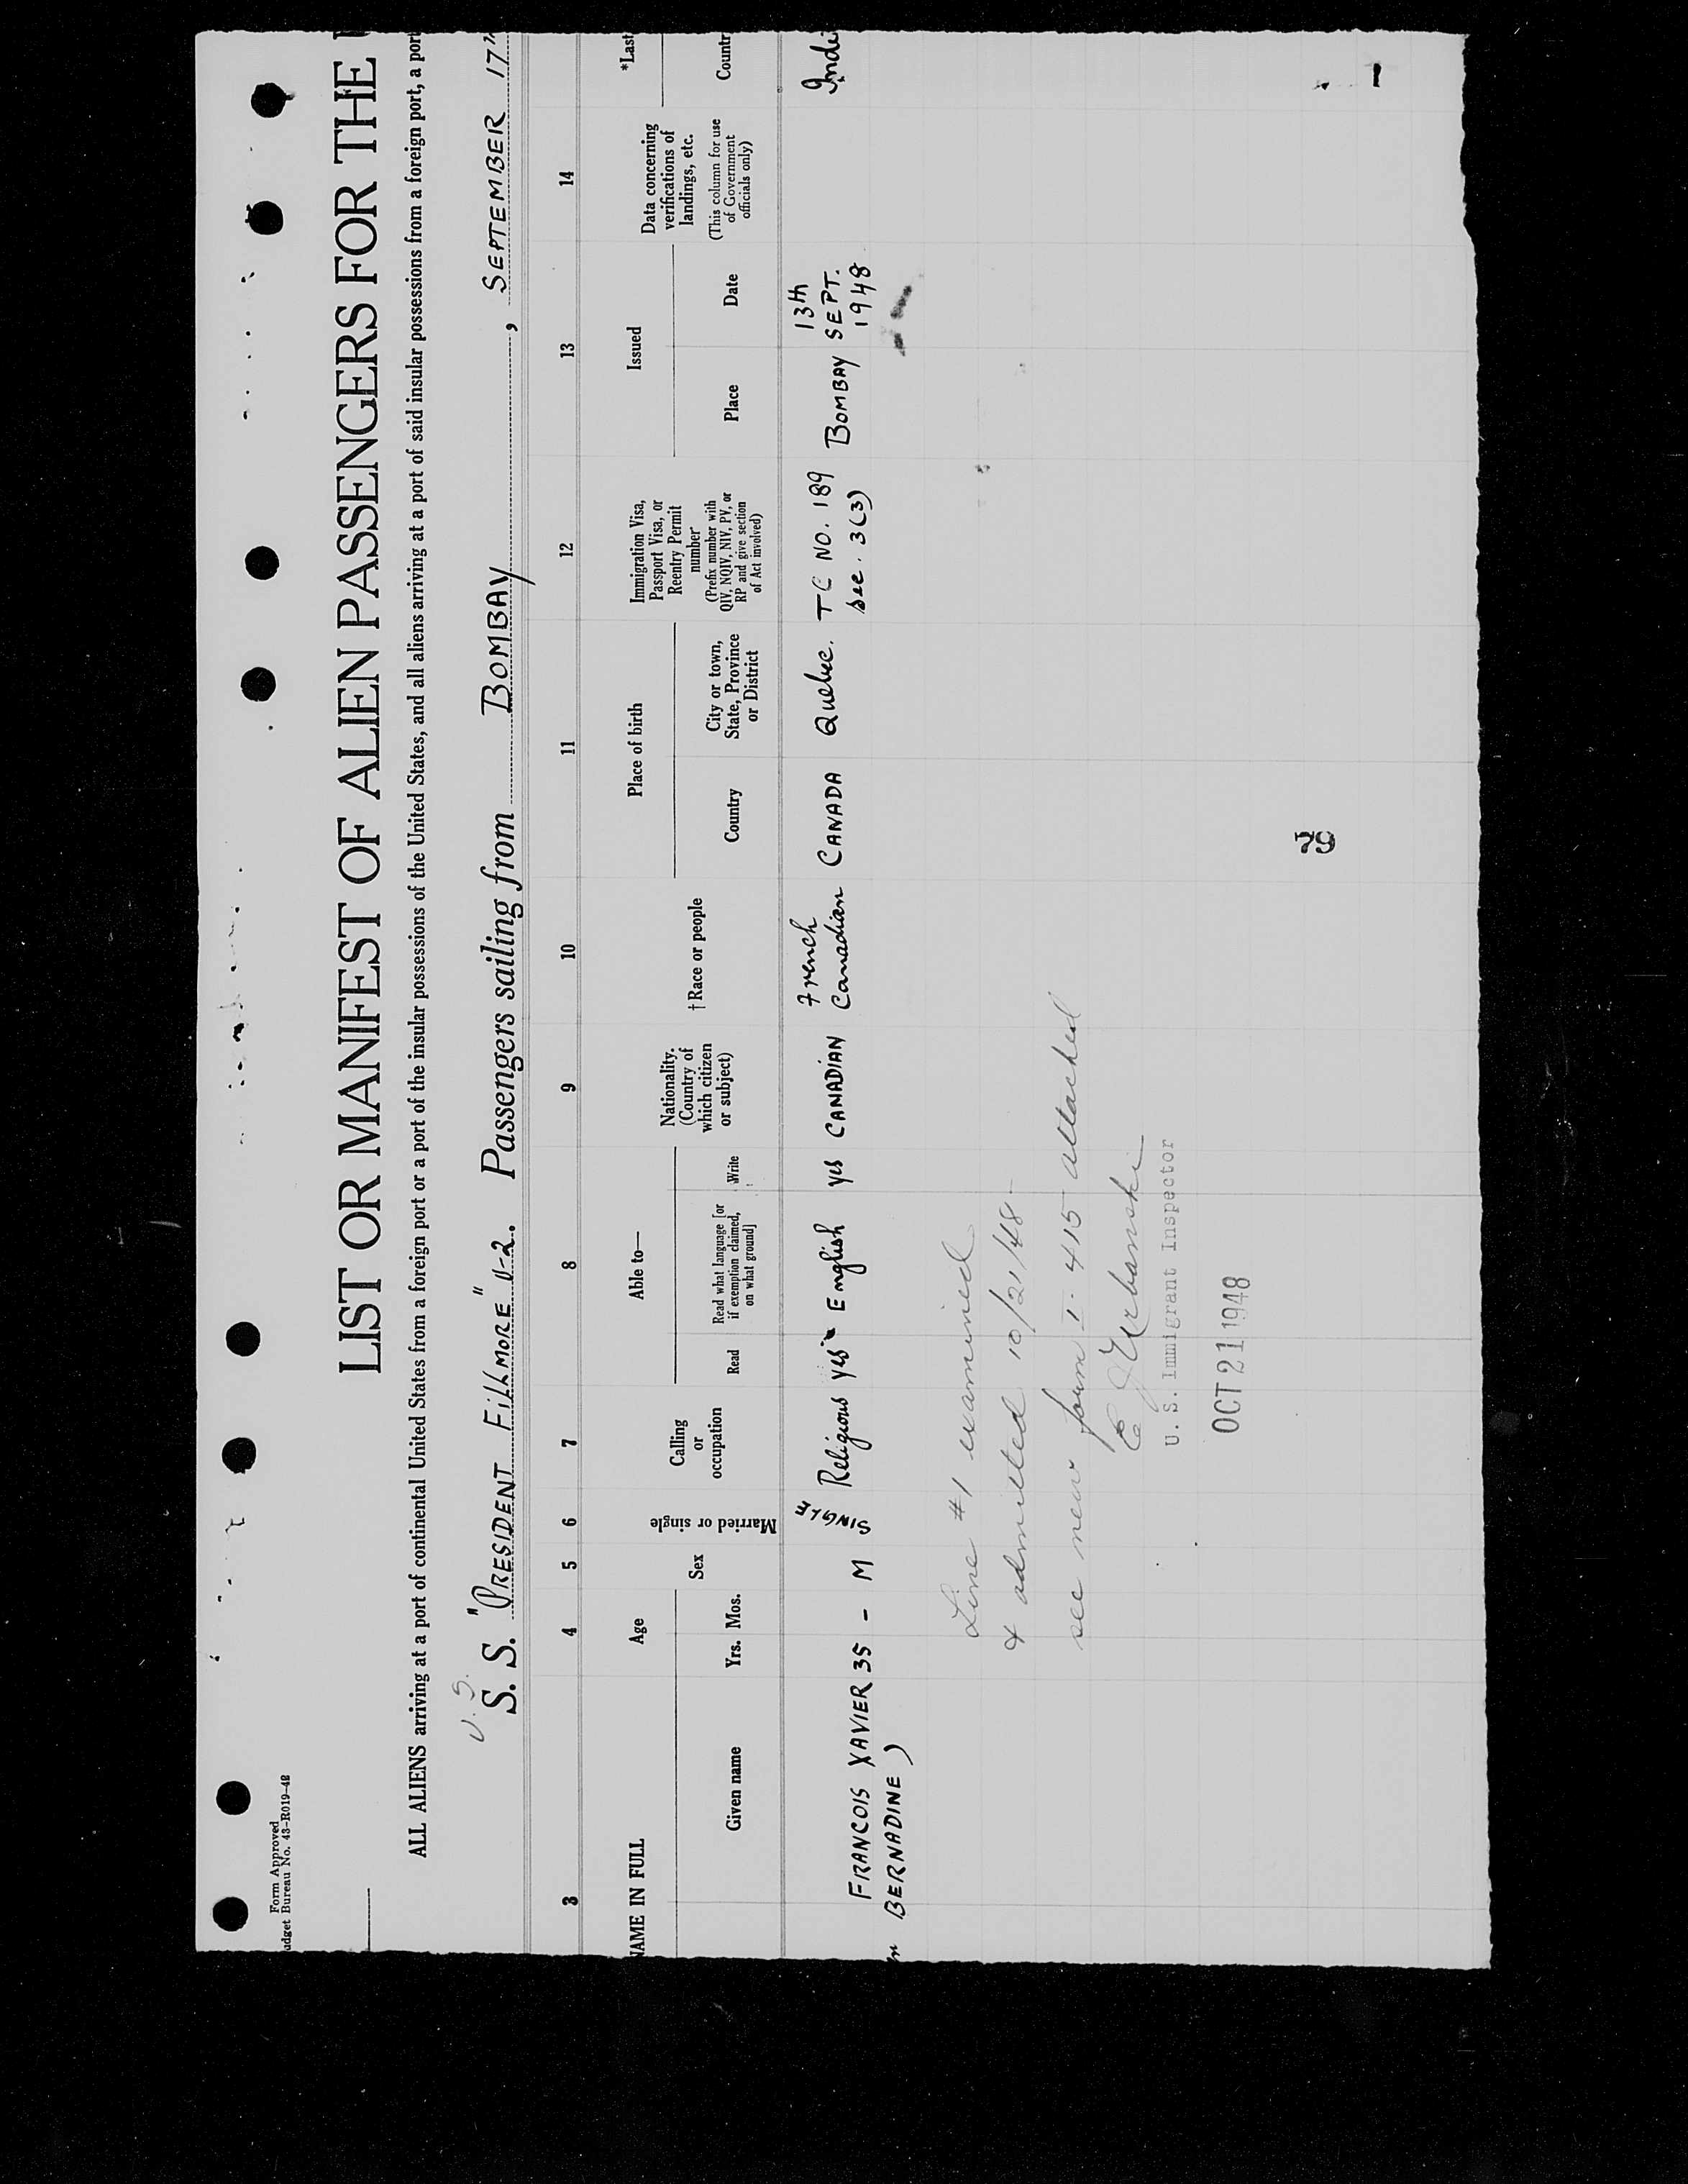 Form Approved
udget Bureau No. 43-R019-42
LIST OR MANIFEST OF ALIEN PASSENGERS FOR THE
ALL ALIENS arriving at a port of continental United States from a foreign port or a port of the insular possessions of the United States, and all aliens arriving at a port of said insular possessions from a foreign port, a port
U. S.
S. S. "PRESIDENT FillMORE" V-2. Passengers sailing from BOMBAY, SEPTEMBER 17th
3 4 5 6 7 8 9 10 11 12 13 14
NAME IN FULL
Given name
Age
Yrs. Mos.
Sex
Married or single
Calling
or
occupation
Able to—
Read
Read what language [or
if exemption claimed,
on what ground]
Write
Nationality.
(Country of
which citizen
or subject)
†Race or people
Place of birth
Country
City or town,
State, Province
or District
Immigration Visa,
Passport Visa, or
Reentry Permit
number
(Prefix number with
QIV, NQIV, NIV, PV, or
RP and give section
of Act involved)
Issued
Place
Date
Data concerning
verifications of
landings, etc.
(This column for use
of Government
officials only)
*Last
Countr
FRANCOIS XAVIER 35 - M SINGLE Religious yes English yes CANADIAN French Canadian CANADA Quebec. TC NO. 189 BOMBAY 13th SEPT. 1948 Indi
BERNADINE) sec. 3(3)
Line #1 examined
& admitted 10/21/48-
see new form I-415 attached
E J Urbanski
U. S. Immigrant Inspector
OCT 21 1948
29
1